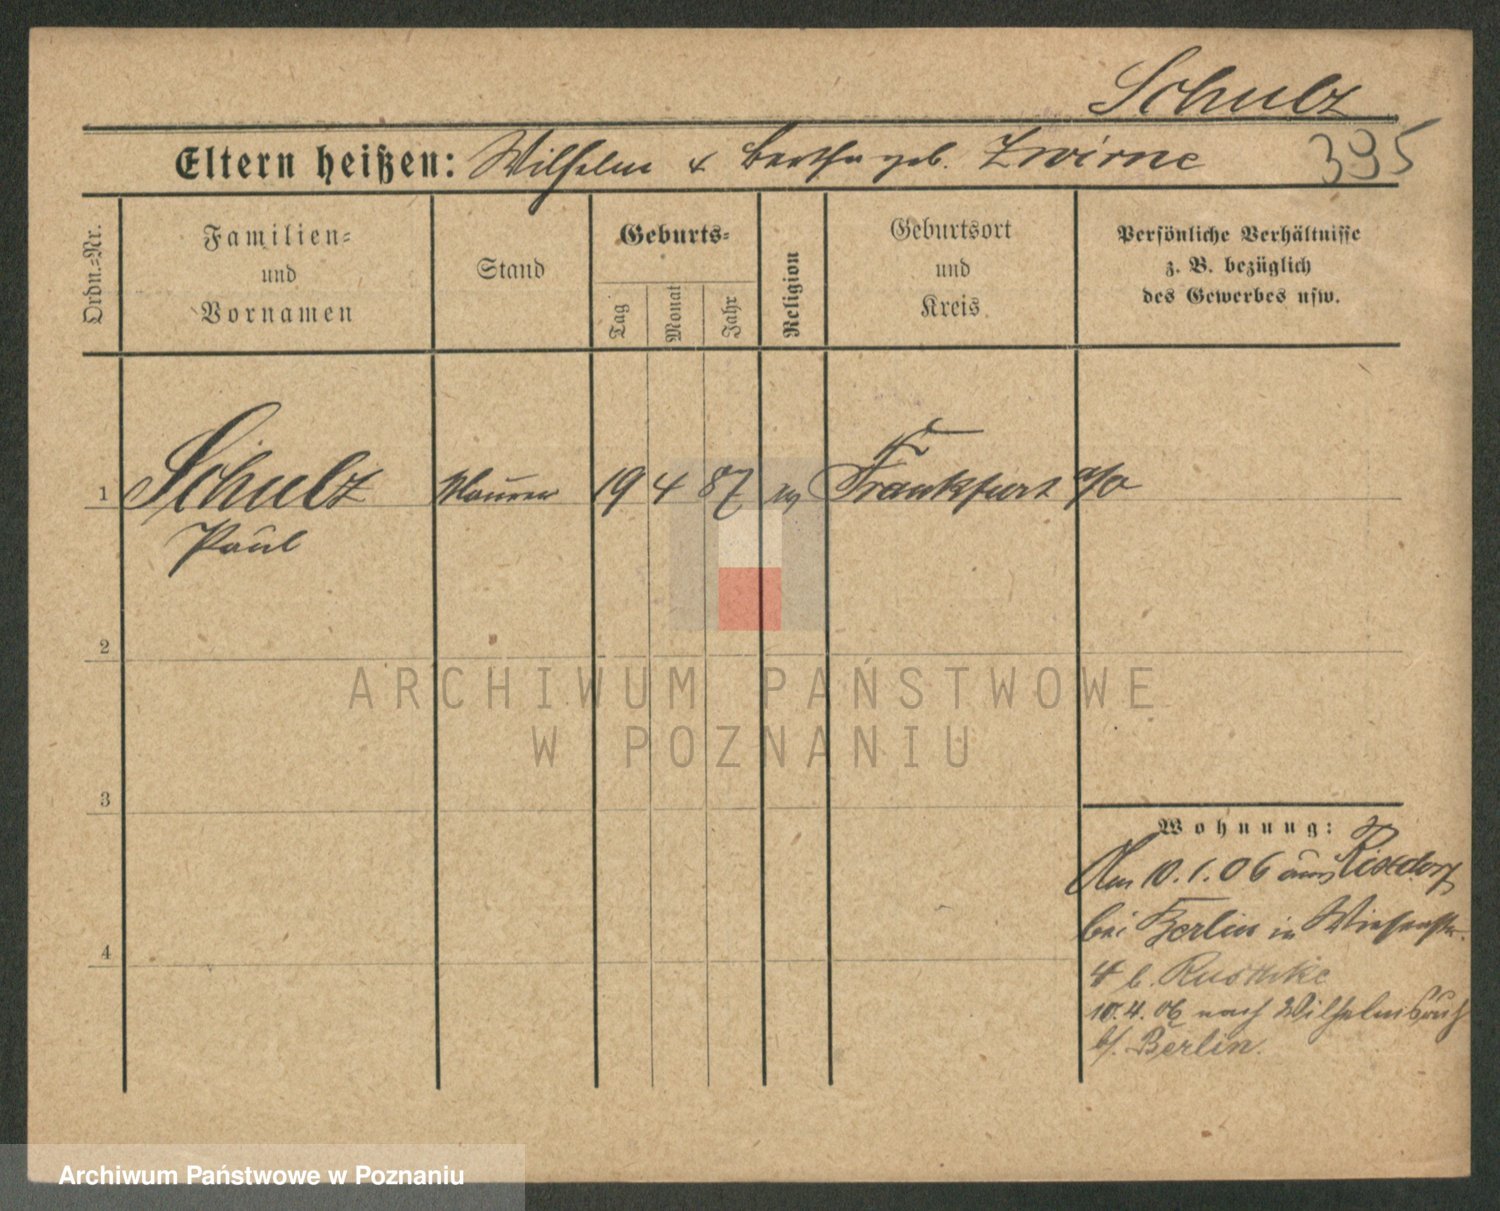 Schulz
Eltern heißen: Wilhelm & Bertha geb. Zwirne
395
Ordn.=Nr.
Familien=
und
Vornamen
Stand
Geburts=
Tag
Monat
Jahr
Religion
Geburtsort
und
Kreis
Persönliche Verhältnisse
z. B. bezüglich
des Gewerbes usw.
1 Schulz Maurer 19 4 87 ev Frankfurt a/O
Paul
2
3
4
Wohnung:
Am 10.1.06 aus Rixdorf
bei Berlin in Wiesenstr.
4 b.
10.4.06 nach Wilhelmsruh
b/. Berlin.
ARCHIWUM PAŃSTWOWE
W POZNANIU
Archiwum Państwowe w Poznaniu